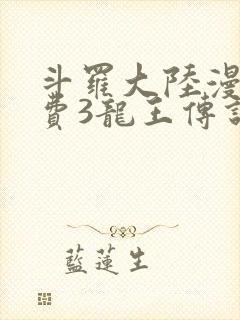 斗羅大陸漫
費3龍王傳
藍蓮生